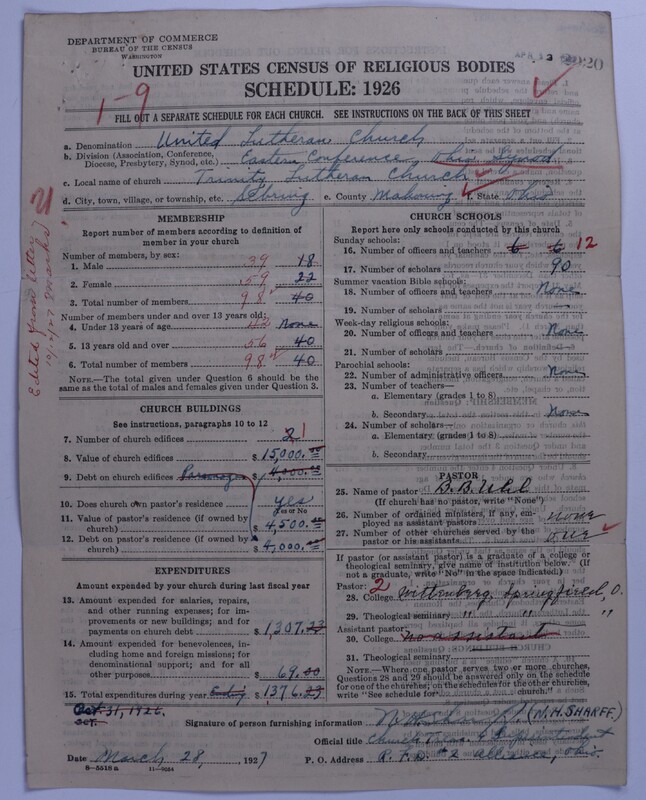 DEPARTMENT OF COMMERCE
BUREAU OF THE CENSUS
WASHINGTON
UNITED STATES CENSUS OF RELIGIOUS BODIES
SCHEDULE: 1926
1-9
FILL OUT A SEPARATE SCHEDULE FOR EACH CHURCH. SEE INSTRUCTIONS ON THE BACK OF THIS SHEET
a. Denomination United Lutheran Church
b. Division (Association, Conference, Diocese, Presbytery, Synod, etc.) Eastern Conference, Ohio Synod
c. Local name of church Trinity Lutheran Church
d. City, town, village, or township, etc. Sebring e. County Mahoning f. State Ohio
Edited from letter 10/12/27
MEMBERSHIP
Report number of members according to definition of member in your church
Number of members, by sex:
1. Male 39 18
2. Female 59 22
3. Total number of members 98 40
Number of members under and over 13 years old:
4. Under 13 years of age 42 None
5. 13 years old and over 56 40
6. Total number of members 98 40
NOTE.—The total given under Question 6 should be the same as the total of males and females given under Question 3.
CHURCH BUILDINGS
See instructions, paragraphs 10 to 12
7. Number of church edifices 2 1
8. Value of church edifices $ 15,000.00
9. Debt on church edifices Parsonage $ 4,000.00
10. Does church own pastor's residence? Yes
Yes or No
11. Value of pastor's residence (if owned by church) $ 4,500.00
12. Debt on pastor's residence (if owned by church) $ 4,000.00
EXPENDITURES
Amount expended by your church during last fiscal year
13. Amount expended for salaries, repairs, and other running expenses; for improvements or new buildings; and for payments on church debt $ 1307.23
14. Amount expended for benevolences, including home and foreign missions; for denominational support; and for all other purposes $ 69.00
15. Total expenditures during year Ending $ 1376.23
Oct. 31, 1926.
CHURCH SCHOOLS
Report here only schools conducted by this church
Sunday schools:
16. Number of officers and teachers 6 6 12
17. Number of scholars 90
Summer vacation Bible schools:
18. Number of officers and teachers None
19. Number of scholars
Week-day religious schools:
20. Number of officers and teachers None
21. Number of scholars
Parochial schools:
22. Number of administrative officers None
23. Number of teachers—
a. Elementary (grades 1 to 8)
b. Secondary None
24. Number of scholars—
a. Elementary (grades 1 to 8)
b. Secondary
PASTOR
25. Name of pastor B. B. Uhl
(If church has no pastor, write "None")
26. Number of ordained ministers, if any, employed as assistant pastors none
27. Number of other churches served by the pastor or his assistants one
If pastor (or assistant pastor) is a graduate of a college or theological seminary, give name of institution below. (If not a graduate, write "No" in the space indicated.)
Pastor: 2
28. College Wittenberg, Springfield, O.
29. Theological seminary " " "
Assistant pastor:
30. College No assistant
31. Theological seminary
NOTE.—Where one pastor serves two or more churches, Questions 28 and 29 should be answered only on the schedule for one of the churches; on the schedules for the other churches, write "See schedule for church."
Signature of person furnishing information (N. H. SHARFF.)
Official title Church Treas. & S. S. Superintendent
Date March 28, 1927 P. O. Address R. F. D. #2 Alliance, Ohio.
8—5518 a 11—9084